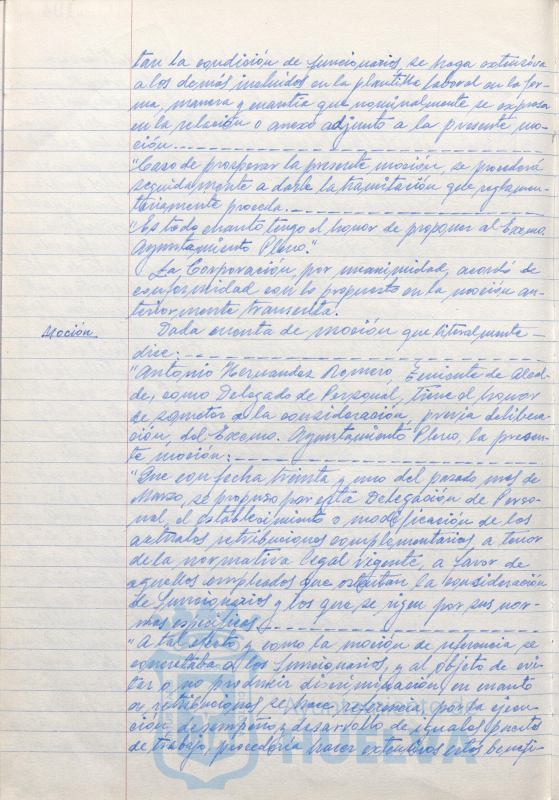 tan la condición de funcionarios, se haga extensiva
a los demás incluidos en la plantilla laboral en la for-
ma, manera y cuantía que nominalmente se expresa
en la relación o anexo adjunto a la presente mo-
ción.
"Caso de prosperar la presente moción, se procederá
seguidamente a darle la tramitación que reglamen-
tariamente proceda.
"Es todo cuanto tengo el honor de proponer al Excmo.
Ayuntamiento Pleno."
La Corporación, por unanimidad, acordó de
conformidad con lo propuesto en la moción an-
teriormente transcrita.
Moción Dada cuenta de moción que literalmente
dice:
"Antonio Hernandez Romero, Teniente de Alcal-
de, como Delegado de Personal, tiene el honor
de someter a la consideración, previa delibera-
ción, del Excmo. Ayuntamiento Pleno, la presen-
te moción:
"Que con fecha treinta y uno del pasado mes de
Marzo, se propuso por esta Delegación de Perso-
nal, el establecimiento o modificación de los
actuales retribuciones complementarias a tenor
de la normativa legal vigente, a favor de
aquellos empleados que ostentan la consideración
de funcionarios y los que se rigen por sus nor-
mas específicas
"A tal efecto y como la moción de referencia se
concretaba a los funcionarios, y al objeto de evi-
tar o no producir discriminación en cuanto
a retribuciones se hace referencia, por la ejecu-
ción desempeño y desarrollo de iguales puestos
de trabajo, procedería hacer extensivos estos benefi-
HUELVA